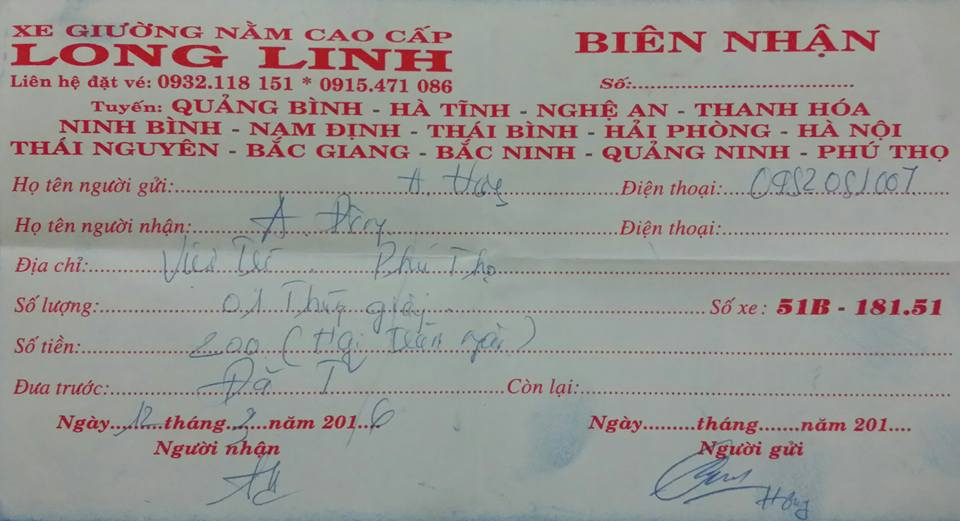 XE GIƯỜNG NẰM CAO CẤP
LONG LINH
Liên hệ đặt vé: 0932.118 151 * 0915.471 086
BIÊN NHẬN
Số:
Tuyến: QUẢNG BÌNH - HÀ TĨNH - NGHỆ AN - THANH HÓA
NINH BÌNH - NAM ĐỊNH - THÁI BÌNH - HẢI PHÒNG - HÀ NỘI
THÁI NGUYÊN - BẮC GIANG - BẮC NINH - QUẢNG NINH - PHÚ THỌ
Họ tên người gửi: A. Điện thoại:
Họ tên người nhận: A. Điện thoại:
Địa chỉ: Phú Thọ
Số lượng: 01 Thùng giấy Số xe: 51B - 181.51
Số tiền: 200 (Hai trăm ngàn)
Đưa trước: Đã T Còn lại:
Ngày 12 tháng 3 năm 2016 Ngày tháng năm 201
Người nhận Người gửi